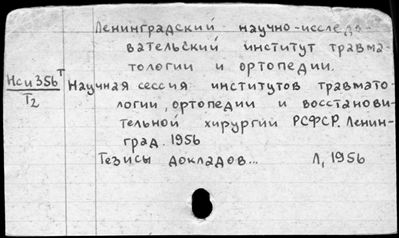 Ленинградский научно-исследо-
вательский институт травма
тологии и ортопедии.
Нси356т
T2
Научная сессия институтов травмато-
логии, ортопедии и восстанови-
тельной хирургии РСФСР. Ленин-
град. 1956
Тезисы докладов... Л, 1956